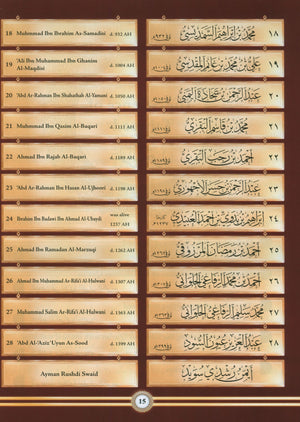 18 Muhmmad Ibn Ibrahim As-Samadisi d. 932 AH
محمد بن إبراهيم السمديسي ١٨
19 'Ali Ibn Muhammad Ibn Ghanim Al-Maqdisi d. 1004 AH
علي بن محمد بن غانم المقدسي ١٩
20 'Abd Ar-Rahman Ibn Shahathah Al-Yamani d. 1050 AH
عبد الرحمن بن شحاذة اليمني ٢٠
21 Muhmmad Ibn Qasim Al-Baqari d. 1111 AH
محمد بن قاسم البقري ٢١
22 Ahmad Ibn Rajab Al-Baqari d. 1189 AH
أحمد بن رجب البقري ٢٢
23 'Abd Ar-Rahman Ibn Hasan Al-Ujhoori d. 1198 AH
عبد الرحمن بن حسن الأجهوري ٢٣
24 Ibrahim Ibn Badawi Ibn Ahmad Al-'Ubaydi was alive 1237 AH
إبراهيم بن بدوي بن أحمد العبيدي ٢٤
25 Ahmad Ibn Ramadan Al-Marzuqi d. 1262 AH
أحمد بن رمضان المرزوقي ٢٥
26 Ahmad Ibn Muhammad Ar-Rifa'i Al-Hulwani d. 1307 AH
أحمد بن محمد الرفاعي الحلواني ٢٦
27 Muhammad Salim Ar-Rifa'i Al-Hulwani d. 1363 AH
محمد سليم الرفاعي الحلواني ٢٧
28 'Abd Al-'Aziz 'Uyun As-Sood d. 1399 AH
عبد العزيز عيون السود ٢٨
Ayman Rushdi Swaid
أيمن رشدي سويد
15